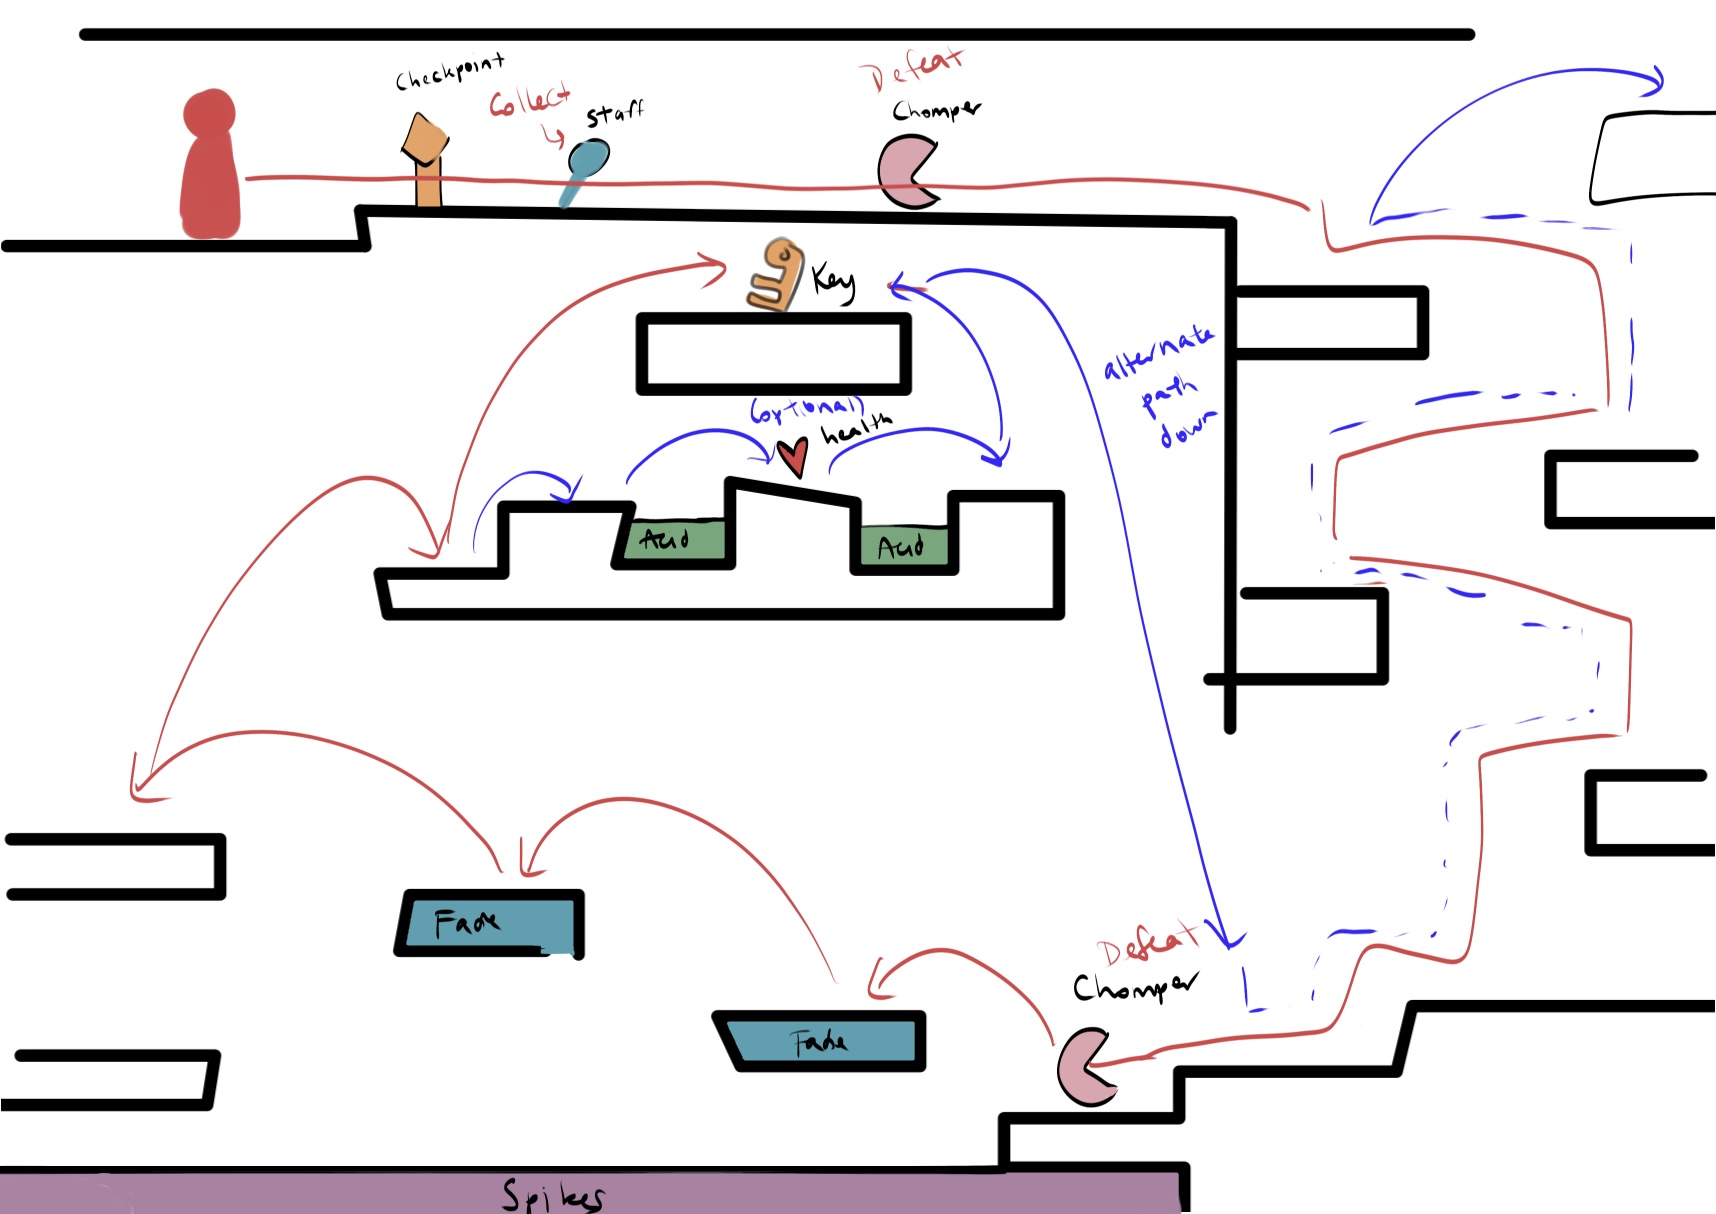 Checkpoint
Collect
Staff
Defeat
Chomper
Key
alternate
path
down
(optional)
health
Acid
Acid
Fade
Fade
Defeat
Chomper
Spikes